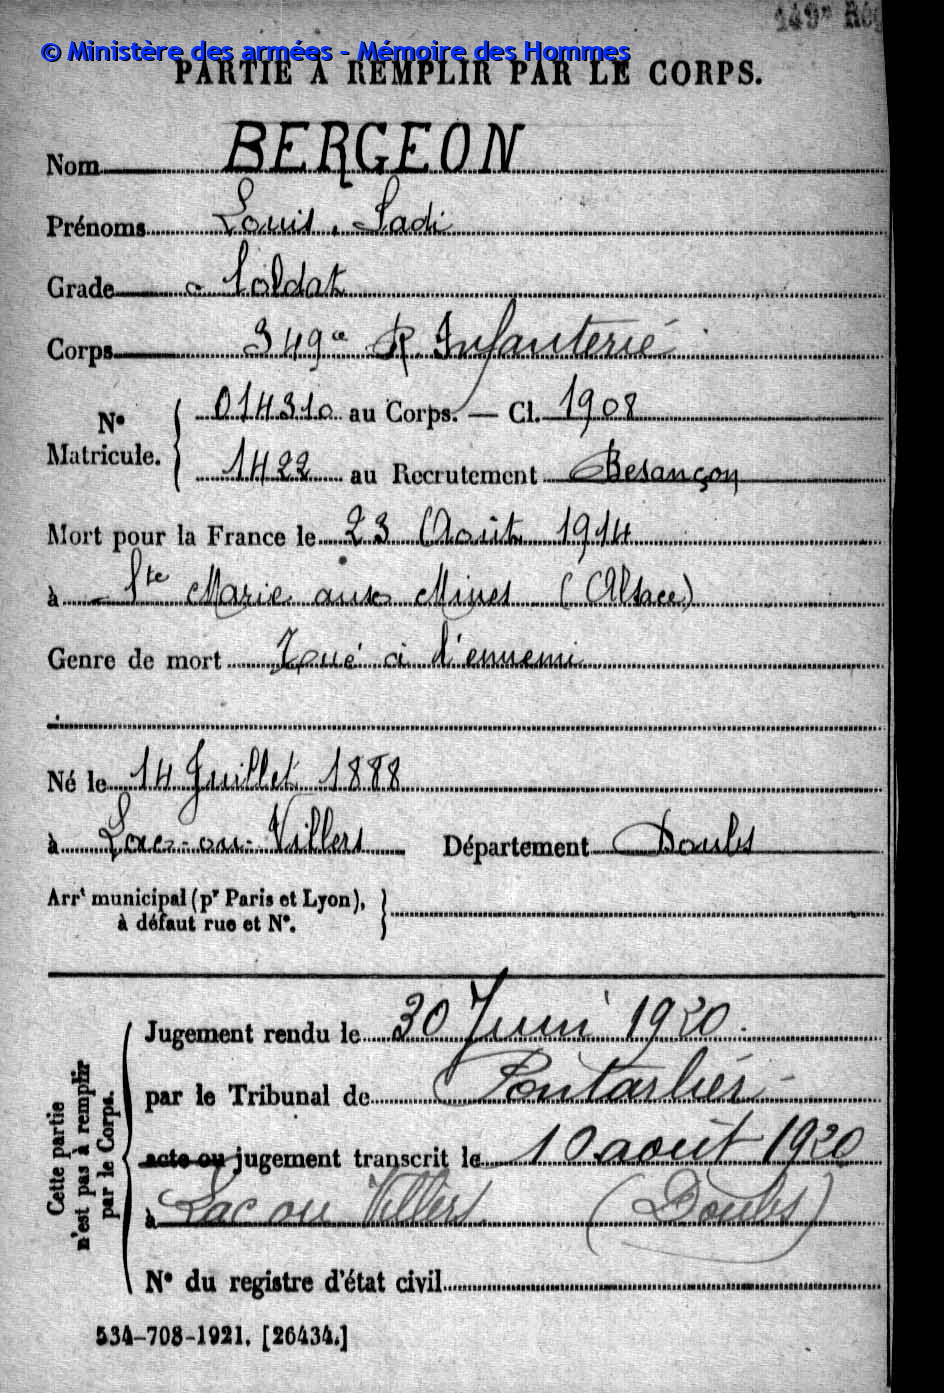 149e Rég
© Ministère des armées - Mémoire des Hommes
PARTIE À REMPLIR PAR LE CORPS.
Nom BERGEON
Prénoms Louis, Sadi
Grade Soldat
Corps 349e R. Infanterie
N° Matricule. 014310 au Corps. — Cl. 1908
1422 au Recrutement Besançon
Mort pour la France le 23 Août 1914
à Ste Marie aux Mines (Alsace)
Genre de mort Tué à l'ennemi
Né le 14 Juillet 1888
à Lac-ou-Villers Département Doubs
Arrt municipal (pr Paris et Lyon),
à défaut rue et N°.
Cette partie
n'est pas à remplir
par le Corps.
Jugement rendu le 30 Juin 1920.
par le Tribunal de Pontarlier
acte ou jugement transcrit le 10 août 1920
à Lac ou Villers (Doubs)
N° du registre d'état civil
534-708-1921. [26434.]